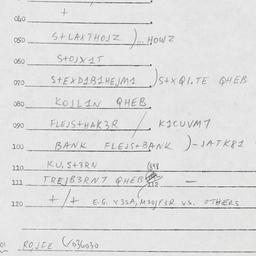 +
040
050 S+LAXTHOJZ )...HOWZ
060 S+OJX1T
070 S+EXD1B1HEJM1 )S+XQ1.TE QHEB
080 KOJL1N QHEB
090 FLEJS+HAK3R / K1CUVM7
100 BANK FLEJS+BANK )-JATK81
110 KU,S+3RN
111 TREJB3RN7 QHEB —
112
120 +/+ E.G. Y3SA, VS. OTHERS
01 ROJFE (/036030